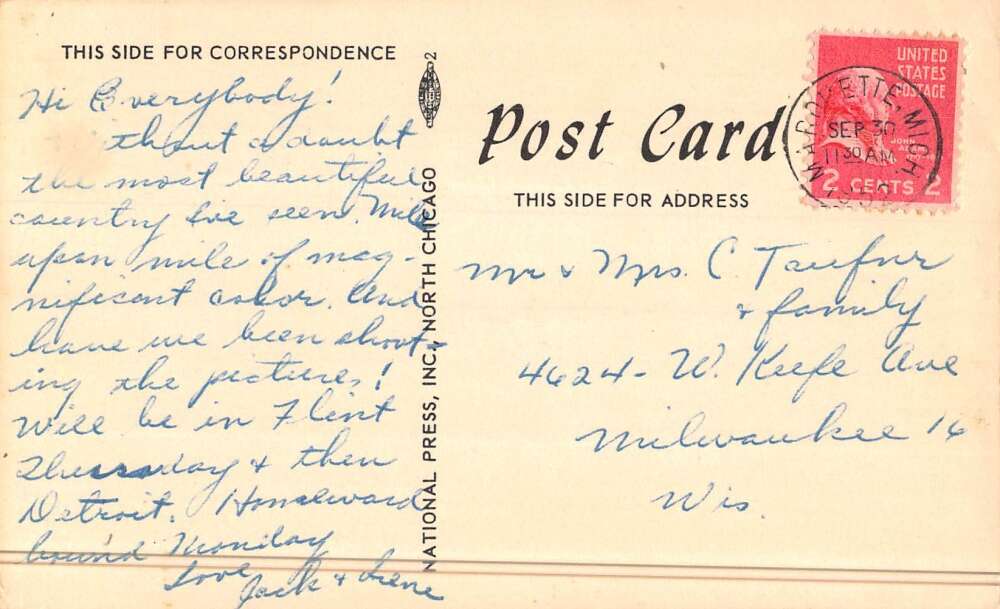 THIS SIDE FOR CORRESPONDENCE
Hi Everybody!
thout a doubt
the most beautiful
country I've seen. Mile
upon mile of mag-
nificent color. And
have we been shoot-
ing the pictures!
Will be in Flint
Thursday & then
Detroit. Homeward
bound Monday
Love
Jack & Irene
NATIONAL PRESS, INC., NORTH CHICAGO
2
Post Card
THIS SIDE FOR ADDRESS
UNITED
STATES
POSTAGE
JOHN
ADAMS
2 CENTS 2
MARQUETTE, MICH
SEP 30
11 30 AM
Mr & Mrs. C Taufnr
& family
4624 - W. Keefe Ave
Milwaukee 16
Wis.